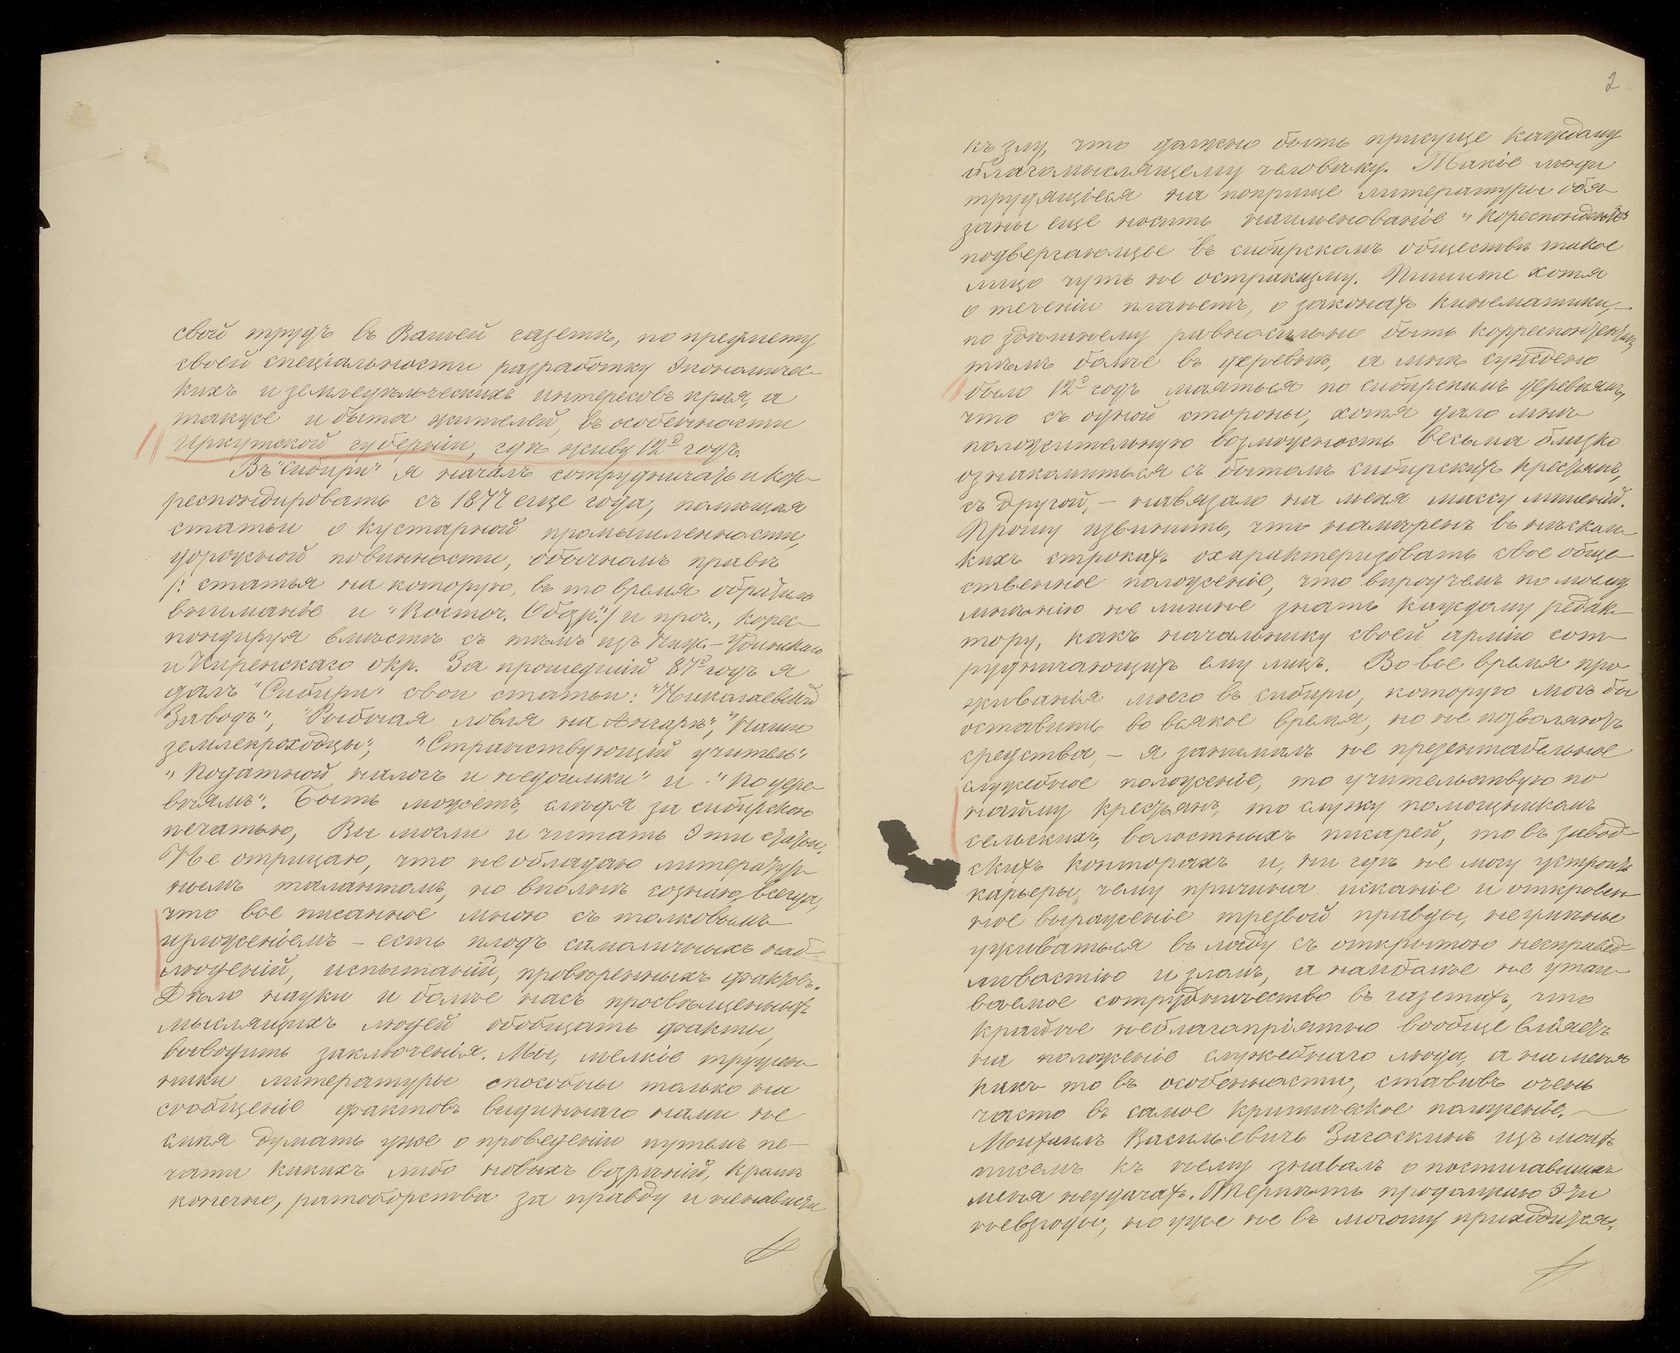 свой трудъ въ Вашей газетѣ, по предмету
своей спеціальности разработку экономичес-
кихъ и земледѣльческихъ интересовъ края, а
также и быта жителей, въ особенности
Иркутской губерніи, гдѣ живу 12й годъ.
Въ "Сибири" я началъ сотрудничать и кор-
респондировать съ 1877 еще года, помѣщая
статьи о кустарной промышленности,
дорожной повинности, обычномъ правѣ
/: статья на которую, въ то время обратило
вниманіе и "Восточ. Обозр."/ и проч., корес-
пондируя вмѣстѣ съ тѣмъ изъ Ниж.-Удинскаго
и Киренскаго окр. За прошедшій 87й годъ я
далъ "Сибири" свои статьи: "Николаевскій
Заводъ", "Рыбная ловля на Ангарѣ", "Наши
землепроходцы", "Странствующій учитель"
"Податной налогъ и недоимки" и "По дере-
внямъ". Быть можетъ, слѣдя за сибирскою
печатью, Вы могли и читать эти статьи.
Не отрицаю, что не обладаю литератур-
нымъ талантомъ, но вполнѣ сознаю всегда,
что все писанное мною съ толковымъ
изложеніемъ – есть плодъ самоличныхъ наб-
людений, испытаній, провѣренныхъ фактовъ.
Дѣло науки и болѣе насъ просвѣщенныхъ
мыслящихъ людей обобщать факты,
выводить заключенія. Мы, мелкіе тружен-
ники литературы способны только на
сообщеніе фактовъ видѣннаго нами не
смѣя думать уже о проведеніи путемъ пе-
чати какихъ либо новыхъ воззрѣній, кромѣ
конечно, ратоборства за правду и ненависти
2
къ злу, что должно быть присуще каждому
благомыслящему человѣку. Такіе люди
трудящіеся на поприщѣ литературы обя-
заны еще носить наименованіе "Кореспондентовъ
подвергающее въ сибирскомъ обществѣ такое
лицо чуть не остракизму. Пишите хотя
о теченіи планетъ, о законахъ кинематики, –
по здѣшнему равносильно быть корреспондентомъ,
тѣмъ болѣе въ деревнѣ, а мнѣ суждено
было 12й годъ маяться по сибирскимъ деревнямъ,
что съ одной стороны, хотя дало мнѣ
положительную возможность весьма близко
ознакомиться съ бытомъ сибирскихъ крестьянъ,
съ другой, – навязало на меня массу лишеній.
Прошу извинить, что намѣренъ въ нѣсколь-
кихъ строкахъ охарактеризовать свое обще-
ственное положеніе, что впрочемъ по моему
мнѣнію не лишнее знать каждому редак-
тору, какъ начальнику своей арміи сот-
рудничающихъ ему лицъ. Во все время про-
живанія моего въ Сибири, которую могъ бы
оставить во всякое время, но не позволяютъ
средства, – я занималъ не презентабельное
служебное положеніе, то учительствую по
найму крестьянъ, то служу помощникомъ
сельскихъ, волостныхъ писарей, то въ завод-
скихъ конторахъ и, ни гдѣ не могу устроить
карьеры, чему причина исканіе и откровен-
ное выраженіе трезвой правды, неумѣнье
уживаться въ ладу съ открытою несправед-
ливостію и зломъ, а наиболѣе не утаи-
ваемое сотрудничество въ газетахъ, что
крайне неблагопріятно вообще вліяетъ
на положеніе служебнаго люда, а на меня
какъ то въ особенности, ставивъ очень
часто въ самое критическое положеніе. –
Михаилъ Васильевичъ Загоскинъ изъ моихъ
писемъ къ нему знавалъ о постигавшихъ
меня неудачахъ. Терпѣть продолжаю эти
невзгоды, но уже не въ мочь приходится.